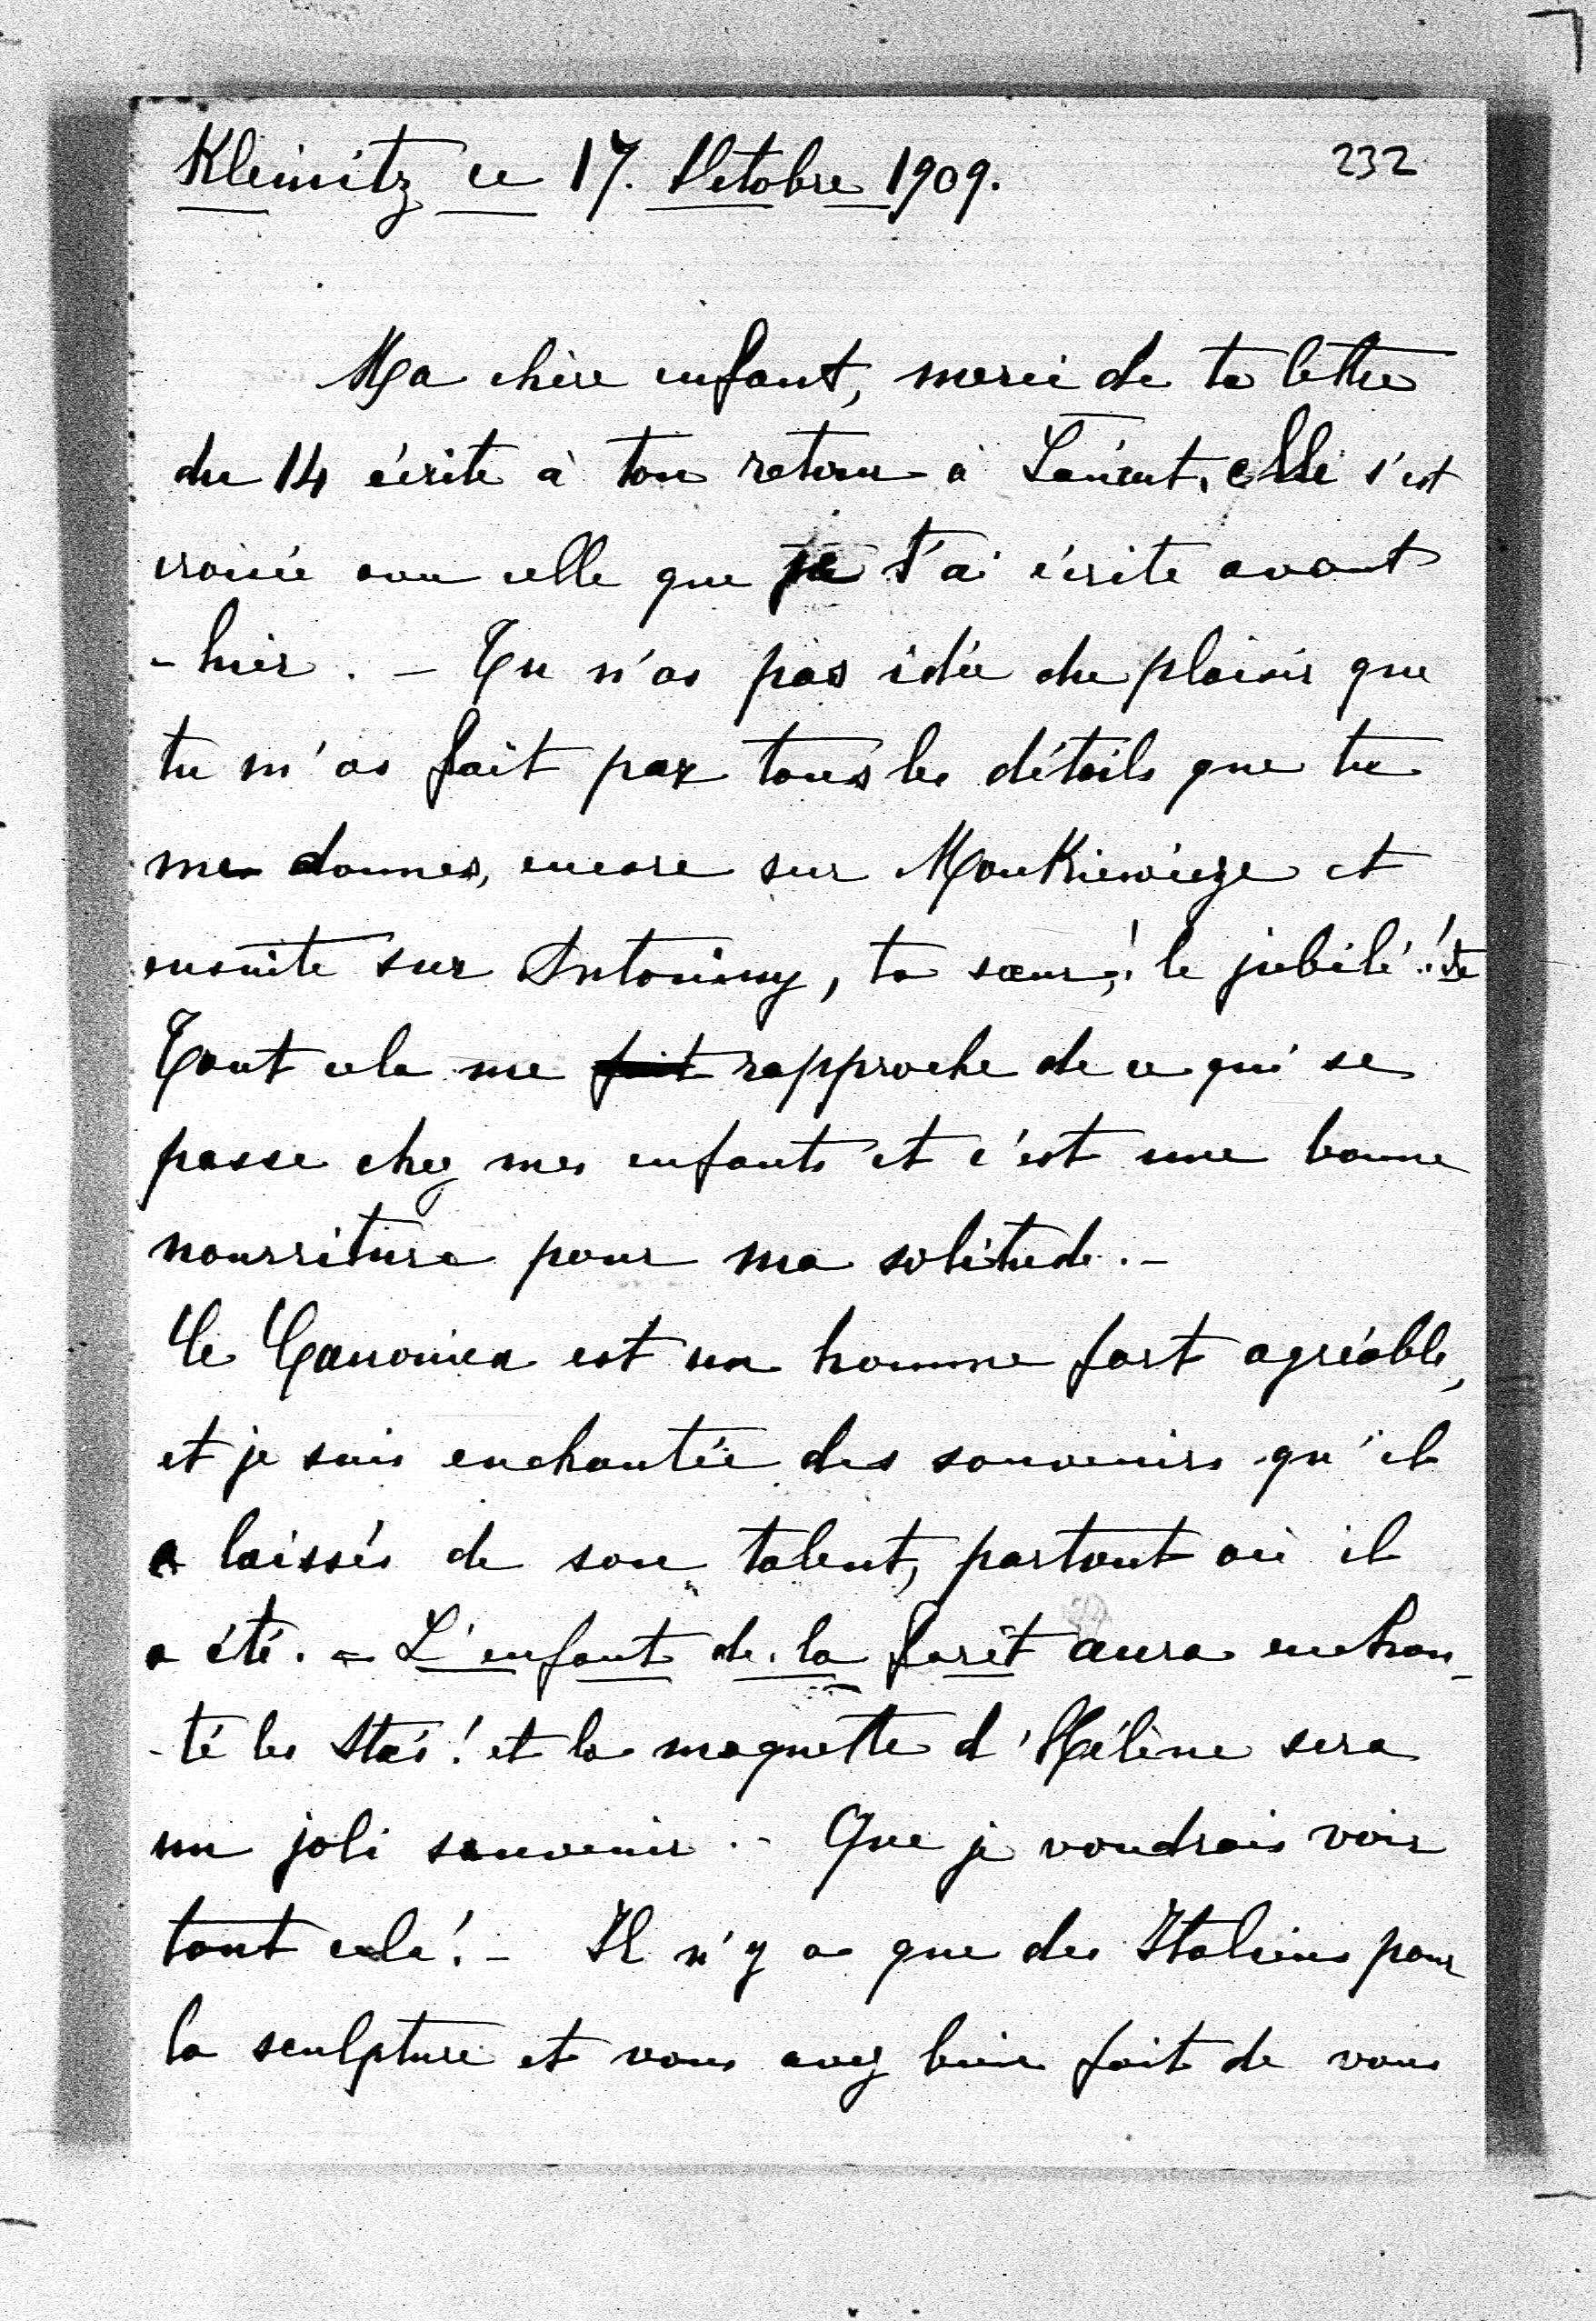 Kleinitz ce 17. Octobre 1909.
232
Ma chère enfant, merci de ta lettre
du 14 écrite à ton retour à Łańcut, elle s'est
croisée avec celle que je t'ai écrite avant
-hier. - Tu n'as pas idée du plaisir que
tu m'as fait par tous les détails que tu
me donnes, encore sur Mańkiewicze et
ensuite sur Antoniny, ta sœur, ! le jubilé !
Tout cela me fait rapproche de ce qui se
passe chez mes enfants et c'est une bonne
nourriture pour ma solitude. -
Ce Canonica est un homme fort agréable,
et je suis enchantée des souvenirs qu'il
a laissés de son talent, partout où il
a été. - L'enfant de la forêt aura enchan-
-té les Staś ! et la maquette d'Hélène sera
un joli souvenir. - Que je voudrais voir
tout cela ! - Il n'y a que des Italiens pour
la sculpture et vous avez bien fait de vous